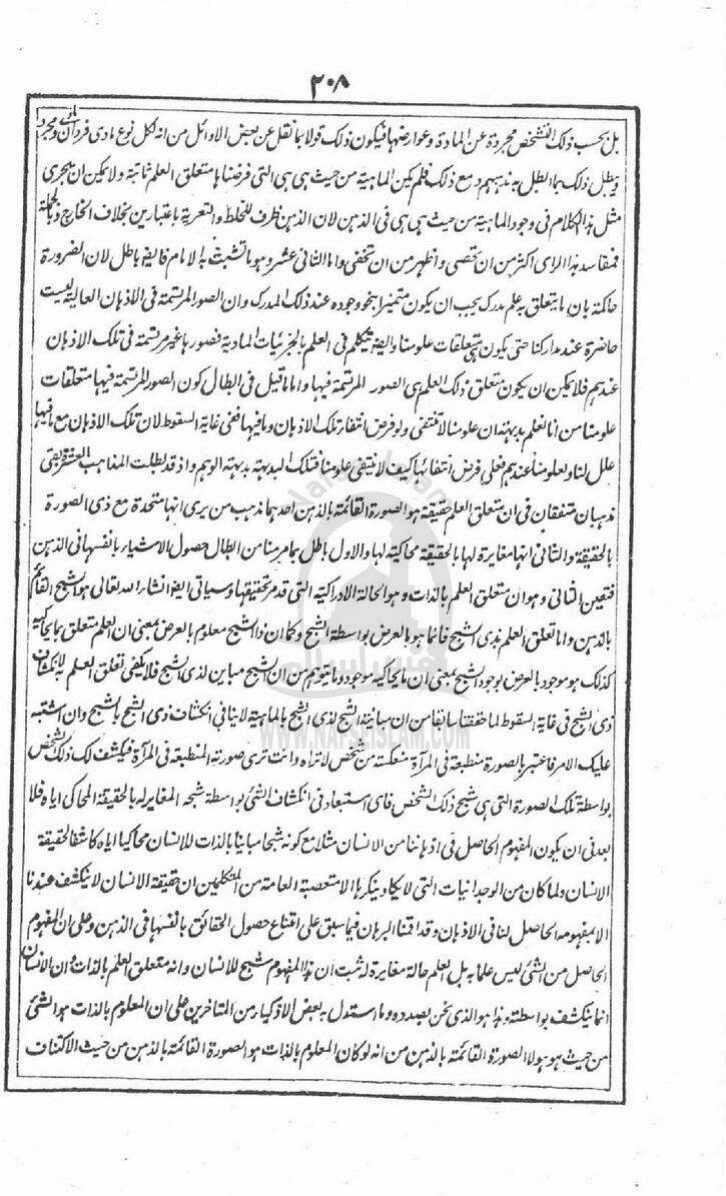 ٢٠٨
بل بحسب ذلك التشخص مجردة عن المادة وعوارضها فيكون ذلك قولا بما نقل عن بعض الاوائل من انه لكل نوع مادى فردان مادى ومجرد
ويبطل ذلك بما ابطل به مذهبهم ومع ذلك فلم يكن الماهية من حيث هى هى التى فرضناها متعلق العلم ثابتة ولا يمكن ان يجرى
مثل هذا الكلام فى وجود الماهية من حيث هى هى فى الذهن لان الذهن ظرف للخلط والتعرية باعتبارين بخلاف الخارج وبالجملة
فمفاسد هذا الراى اكثر من ان تحصى واظهر من ان تخفى واما الثانى عشر وهو ما تشبث به الامام فايضا باطل لان الضرورة
حاكمة بان ما يتعلق به علم مدرك يجب ان يكون متميزا بنحو وجوده عند ذلك المدرك وان الصور المرتسمة فى الاذهان العالية ليست
حاضرة عند مداركنا حتى يكون هى متعلقات علومنا وايضا يتكلم فى العلم بالجزئيات المادية فصورها غير مرتسمة فى تلك الاذهان
عندهم فلا يمكن ان يكون متعلق ذلك العلم هى الصور المرتسمة فيها واما ما قيل فى ابطال كون الصور المرتسمة فيها متعلقات
علومنا من انا نعلم بديهة ان علومنا لا تنتفى ولو فرض انتفاء تلك الاذهان وما فيها ففى غاية السقوط لان تلك الاذهان مع ما فيها
علل لنا ولعلومنا عندهم فعلى فرض انتفائها كيف لا تنتفى علومنا فتلك البديهة بديهة الوهم واذ قد بطلت المذاهب العشرة بقى
مذهبان متفقان فى ان متعلق العلم حقيقة هو الصورة القائمة بالذهن احدهما مذهب من يرى انها متحدة مع ذى الصورة
بالحقيقة والثانى انها مغايرة لها بالحقيقة محاكية لها والاول باطل بما مر منا من ابطال حصول الاشياء بانفسها فى الذهن
فتعين الثانى وهو ان متعلق العلم بالذات وهو الحالة الادراكية التى قد مر تحقيقها وسياتى ايضا انشاء الله تعالى هو الشبح القائم
بالذهن واما تعلق العلم بذى الشبح فانما هو بالعرض بواسطة الشبح وكما ان ذا الشبح معلوم بالعرض بمعنى ان العلم متعلق بما يحاكيه
كذلك هو موجود بالعرض بوجود الشبح بمعنى ان ما يحاكيه موجود وما يتوهم من ان الشبح مباين لذى الشبح فلا يكفى تعلق العلم به لانكشاف
ذى الشبح فى غاية السقوط لما حققنا سابقا من ان مباينة الشبح لذى الشبح بالماهية لا ينافى انكشاف ذى الشبح بالشبح وان اشتبه
عليك الامر فاعتبر بالصورة منطبعة فى المرآة منعكسة من شخص لا تراه وانت ترى صورته المنطبعة فى المرآة فيكشف لك ذلك الشخص
بواسطة تلك الصورة التى هى شبح ذلك الشخص فاى استبعاد فى انكشاف الشئ بواسطة شبحه المغاير له بالحقيقة المحاكى اياه فلا
بعد فى ان يكون المفهوم الحاصل فى اذهاننا من الانسان مثلا مع كونه شبحا مباينا بالذات للانسان محاكيا اياه كاشفا لحقيقة
الانسان ولما كان من الوجدانيات التى لا يكاد ينكرها الا متعصبة العامة من المتكلمين ان حقيقة الانسان لا ينكشف عندنا
الا بمفهومه الحاصل لنا فى الاذهان وقد اقمنا البرهان فيما سبق على امتناع حصول الحقائق بانفسها فى الذهن وعلى ان المفهوم
الحاصل من الشئ ليس علما به بل العلم حالة مغايرة له ثبت ان هذا المفهوم شبح للانسان وانه متعلق العلم بالذات وان الانسان
انما ينكشف بواسطته وهذا هو الذى نحن بصدده وما استدل به بعض الاذكياء من المتاخرين على ان المعلوم بالذات هو الشئ
من حيث هو هو لا الصورة القائمة بالذهن من انه لو كان المعلوم بالذات هو الصورة القائمة بالذهن من حيث الاكتناف
WWW.NAFSEISLAM.COM